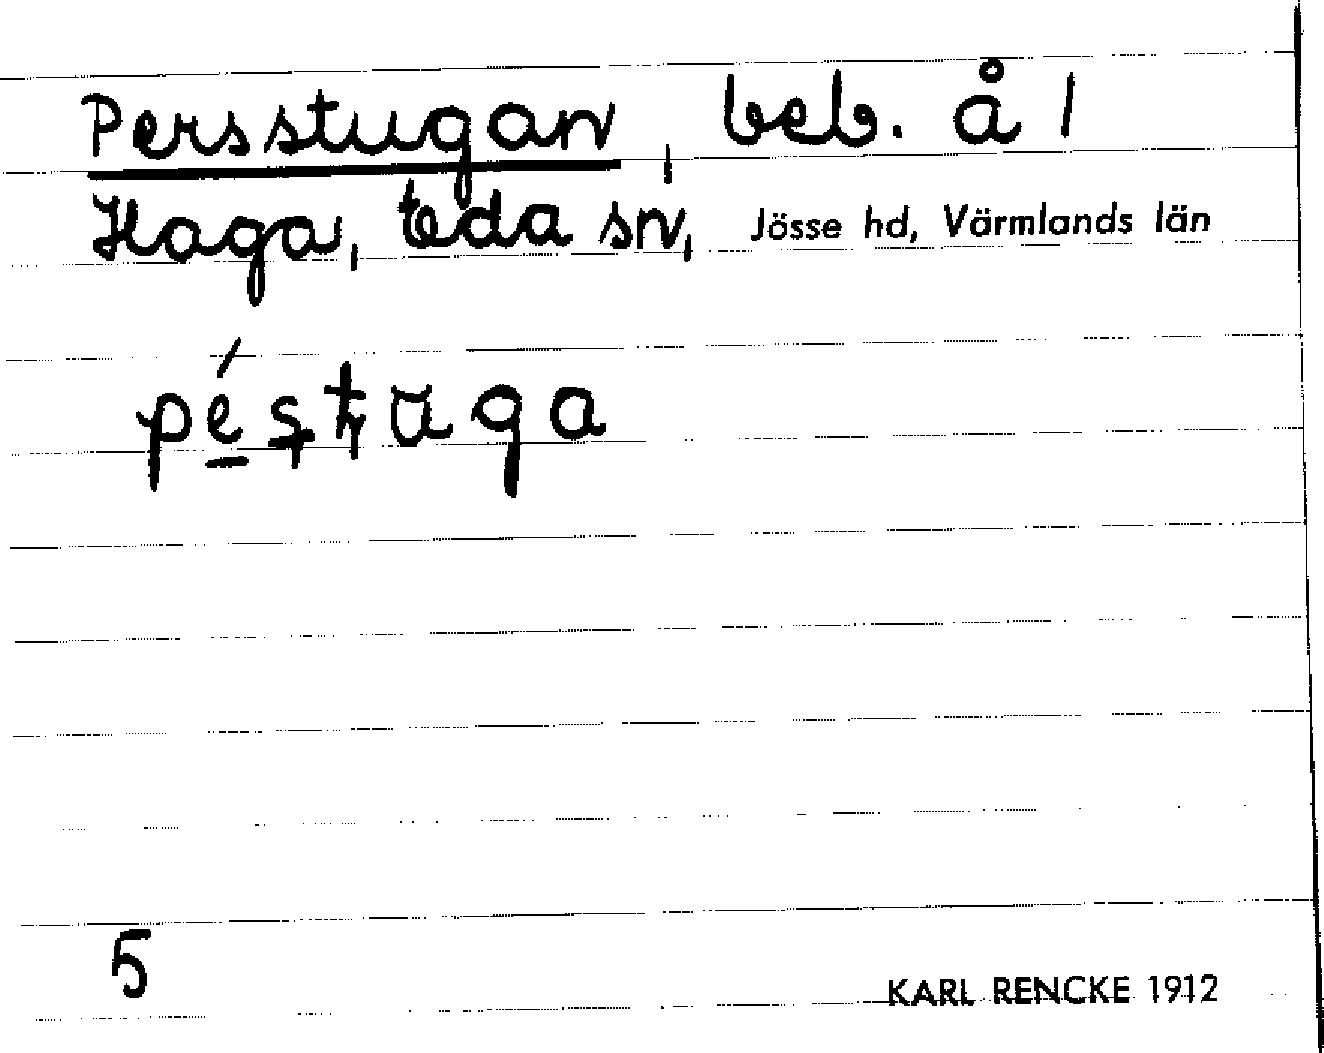 Persstugan, beb. å 1
Haga, Eda sn, Jösse hd, Värmlands län
péstuga
5
KARL RENCKE 1912